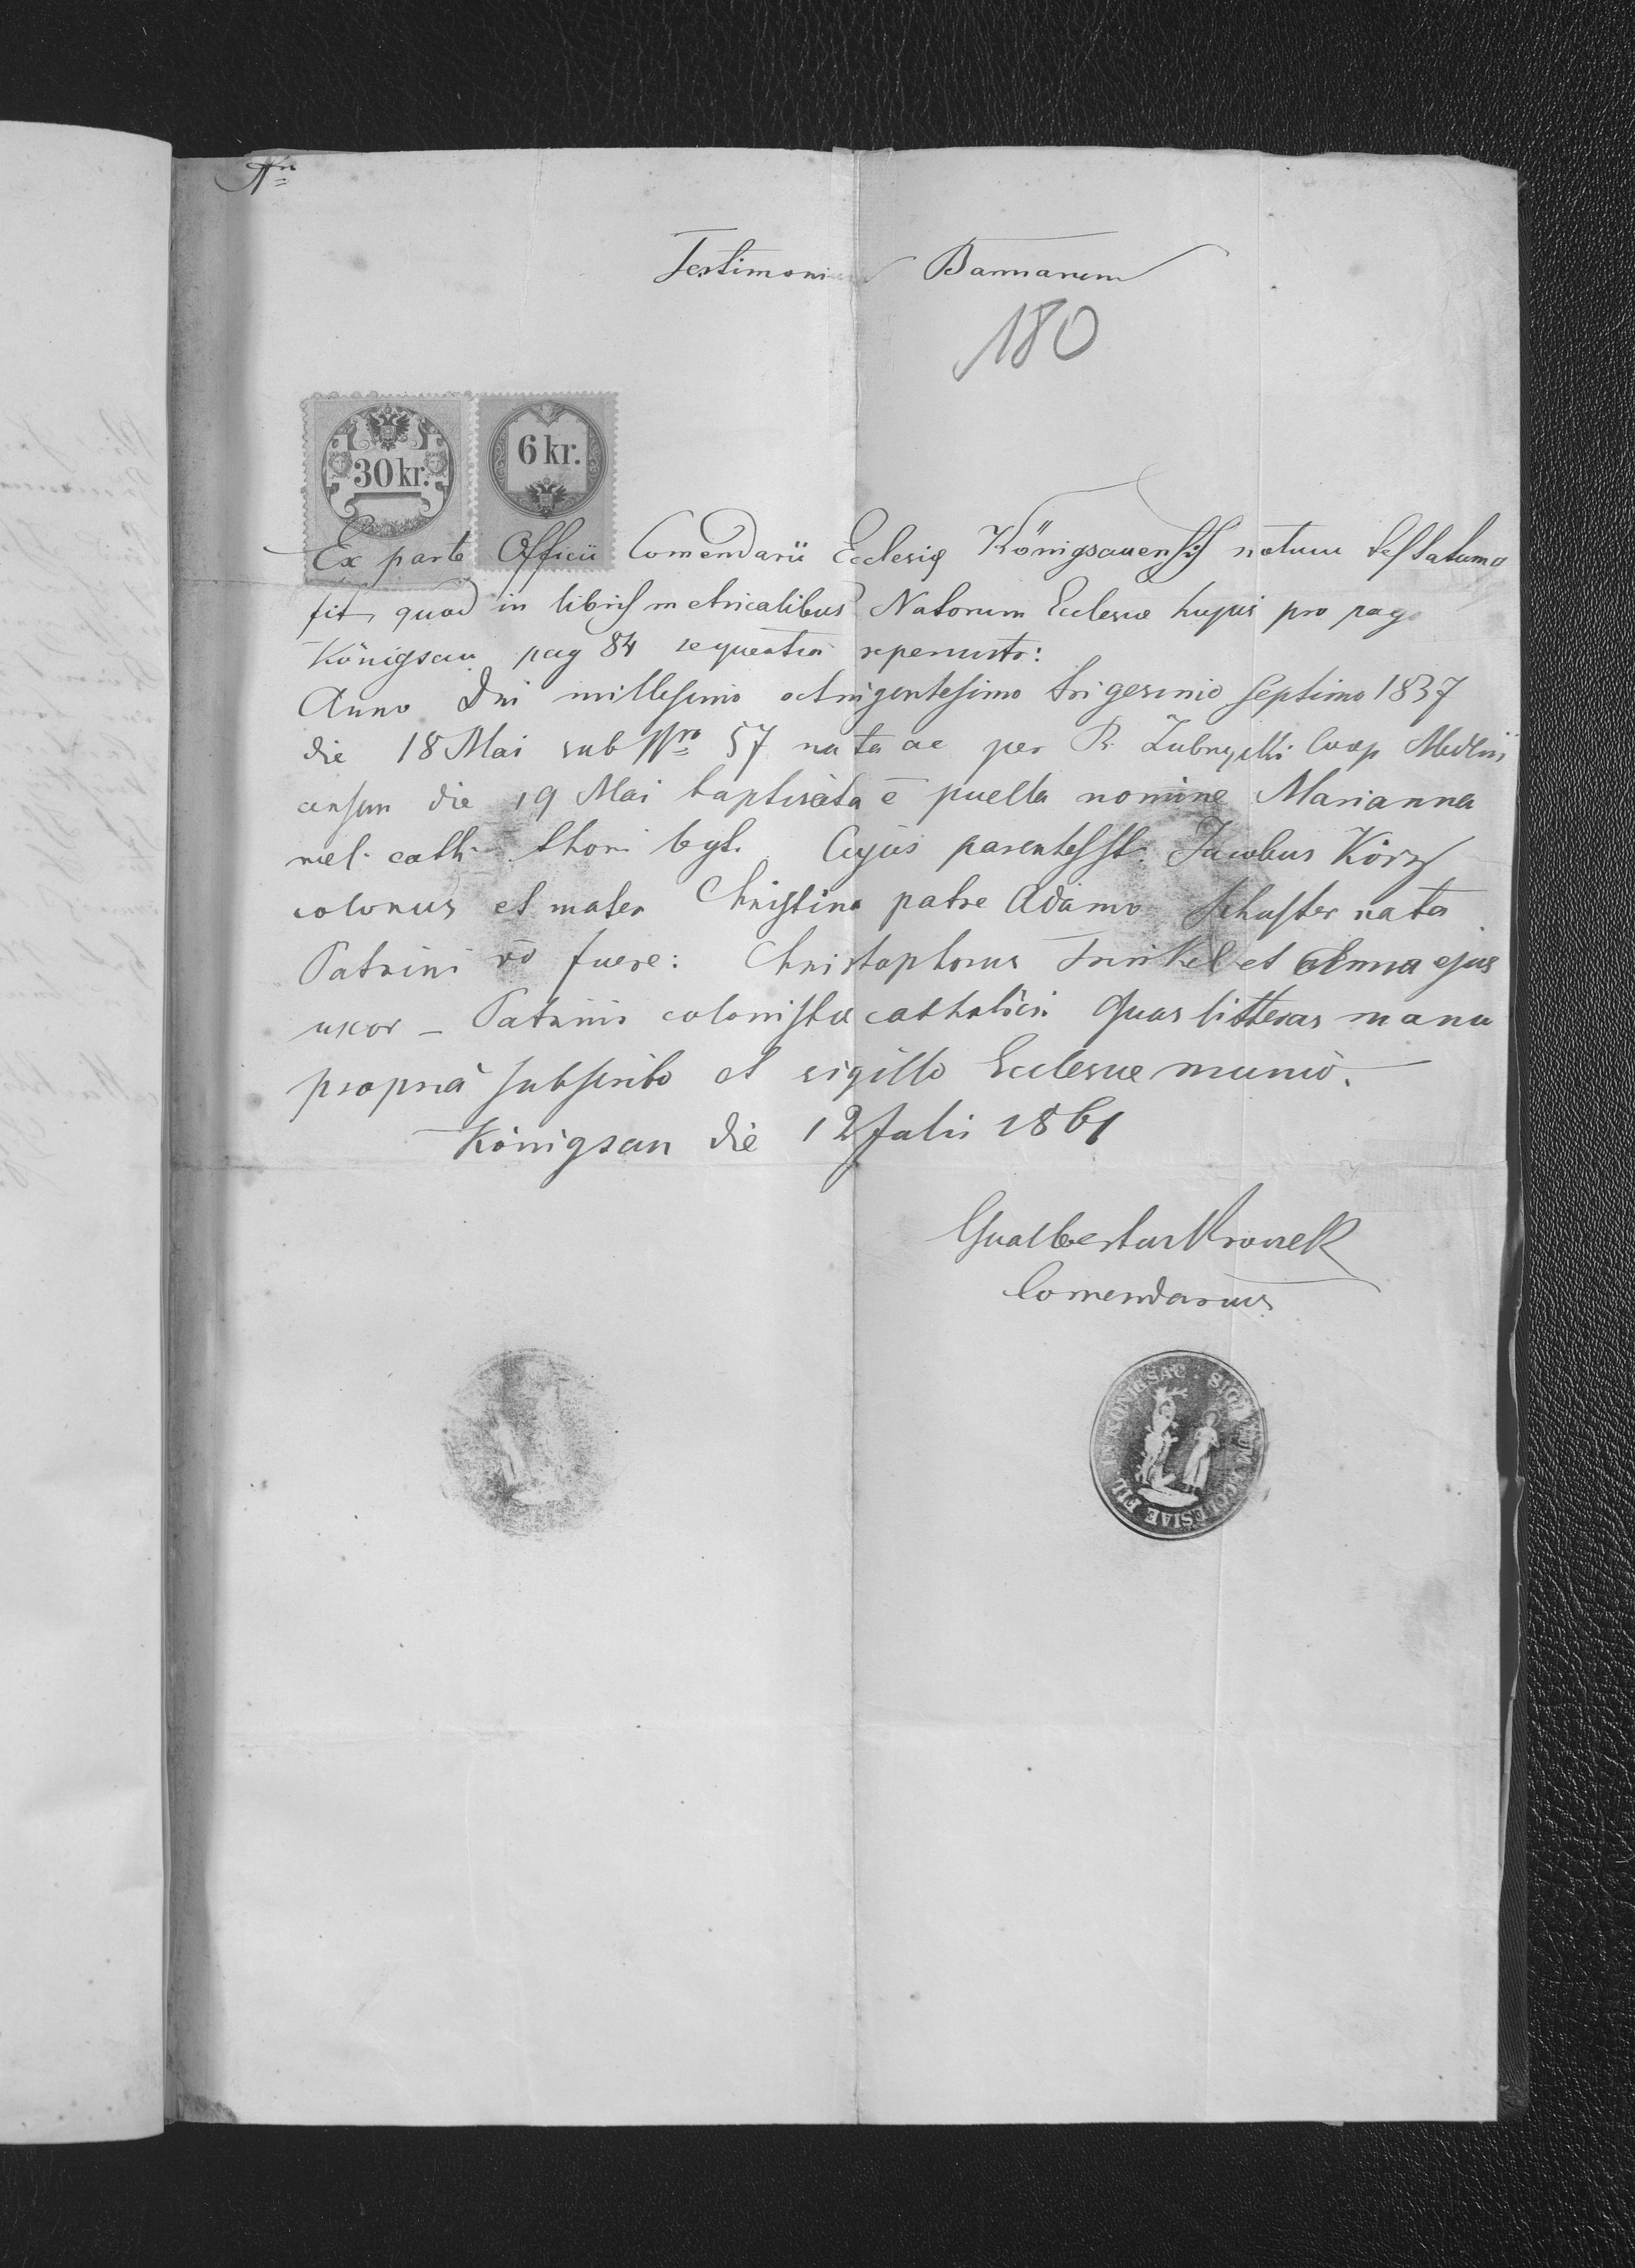 Nro
Testimonium Bannarum
180
30 kr.
6 kr.
Ex parte Officii Comendarii Ecclesiæ Königsauensis notum testatumq
fit, quod in libris metricalibus Natorum Ecclesiæ hujus pro pago
Königsau pag 84 sequentia
Anno Dni millesimo octingentesimo trigesimo septimo 1837
die 18 Mai sub Nro 57 nata ac per R. Coop
die 19 Mai baptisata ē puella nomine Marianna
rel. cath. thori legt. Cujus parentes st. Jacobus Körz
colonus et mater Christina patre Adamo Schuster nata
Patrini vō fuere: Christophorus et Anna ejus
uxor – Patrini colonistæ catholici. Quas litteras manu
propriâ subscribo et sigillo Ecclesiæ munio.
Königsau die 12 Julii 1861
Gualbertus
Comendarius
SIGILLUM ECCLESIAE FIL. IN KÖNIGSAU